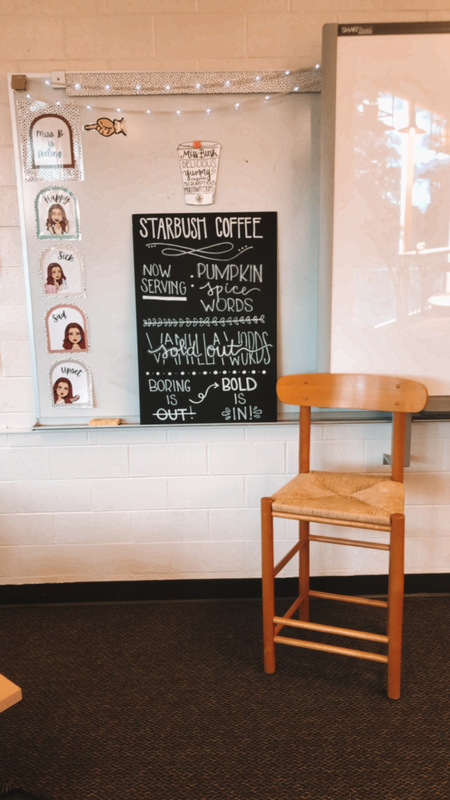 SMART Board
Miss B
is
feeling...
Happy
Sick
Sad
Upset
Miss Bush
DELICIOUS
yummy
STARBUSH COFFEE
NOW
SERVING :
PUMPKIN
spice
WORDS
VANILLA WORDS
sold out
BORING
IS
OUT!
BOLD
IS
IN!